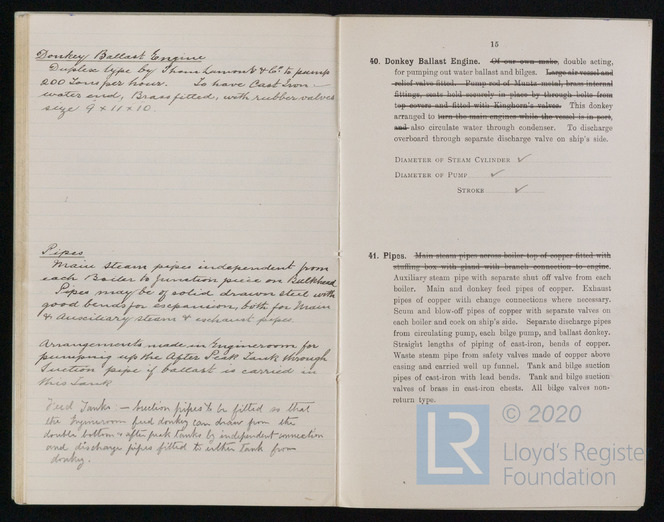 Donkey Ballast Engine
Duplex type by Thom Lamont & Co to pump
200 Tons per hour. To have Cast Iron
water end, Brass fitted, with rubber valves
size 9 x 11 x 10.
Pipes
Main steam pipes independent from
each Boiler to junction piece on Bulkhead
Pipes may be of solid drawn steel with
good bends for expansion, both for Main
& Auxiliary steam & exhaust pipes
Arrangements made in Engineroom for
pumping up the After Peak Tank through
Suction pipe if ballast is carried in
this Tank
Feed Tanks — Suction pipes to be fitted so that
the Engineroom feed donkey can draw from the
double bottom & after peak tanks by independent connection
and discharge pipes fitted to either tank from
donkey.
15
40. Donkey Ballast Engine. Of our own make, double acting,
for pumping out water ballast and bilges. Large air vessel and
relief valve fitted. Pump rod of Muntz metal, brass internal
fittings, seats held securely in place by through bolts from
top covers and fitted with Kinghorn's valves. This donkey
arranged to turn the main engines while the vessel is in port,
and also circulate water through condenser. To discharge
overboard through separate discharge valve on ship's side.
Diameter of Steam Cylinder ✓
Diameter of Pump ✓
Stroke ✓
41. Pipes. Main steam pipes across boiler top of copper fitted with
stuffing box with gland with branch connection to engine.
Auxiliary steam pipe with separate shut off valve from each
boiler. Main and donkey feed pipes of copper. Exhaust
pipes of copper with change connections where necessary.
Scum and blow-off pipes of copper with separate valves on
each boiler and cock on ship's side. Separate discharge pipes
from circulating pump, each bilge pump, and ballast donkey.
Straight lengths of piping of cast-iron, bends of copper.
Waste steam pipe from safety valves made of copper above
casing and carried well up funnel. Tank and bilge suction
pipes of cast-iron with lead bends. Tank and bilge suction
valves of brass in cast-iron chests. All bilge valves non-
return type.
LR
© 2020
Lloyd's Register
Foundation